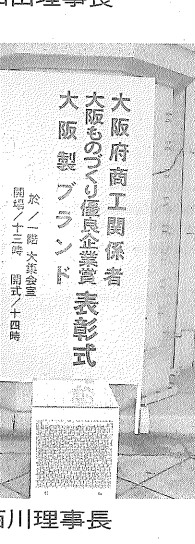 田理事長
大阪府商工関係者
大阪ものづくり優良企業賞 表彰式
大阪製ブランド
於/一階 大集会室
開場/十三時 開式/十四時
川理事長